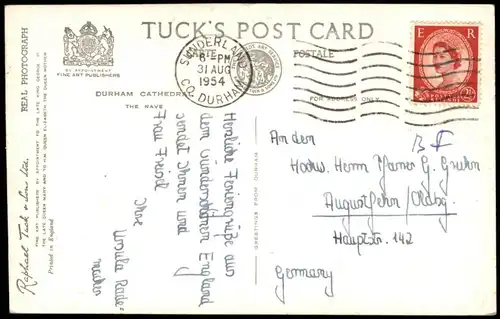 TUCK'S POST CARD
REAL PHOTOGRAPH
BY APPOINTMENT
FINE ART PUBLISHERS
CARTE
POSTALE
FOR ADDRESS ONLY
DURHAM CATHEDRAL
THE NAVE
SUNDERLAND
6 - PM
31 AUG
1954
CO. DURHAM
E R
Raphael Tuck & Sons Ltd.
FINE ART PUBLISHERS BY APPOINTMENT TO THE LATE KING GEORGE V
THE LATE QUEEN MARY AND TO HM QUEEN ELIZABETH THE QUEEN MOTHER
Printed in England
GREETINGS FROM DURHAM
Herzliche Feriengrüße aus
dem wunderschönen England
sendet Ihnen und
Frau Friedel
Ihre
Ursula Rade-
macher
An den
Hochw. Herrn Pfarrer G.
Augustfehn / Oldbg.
Hauptstr. 142
Germany